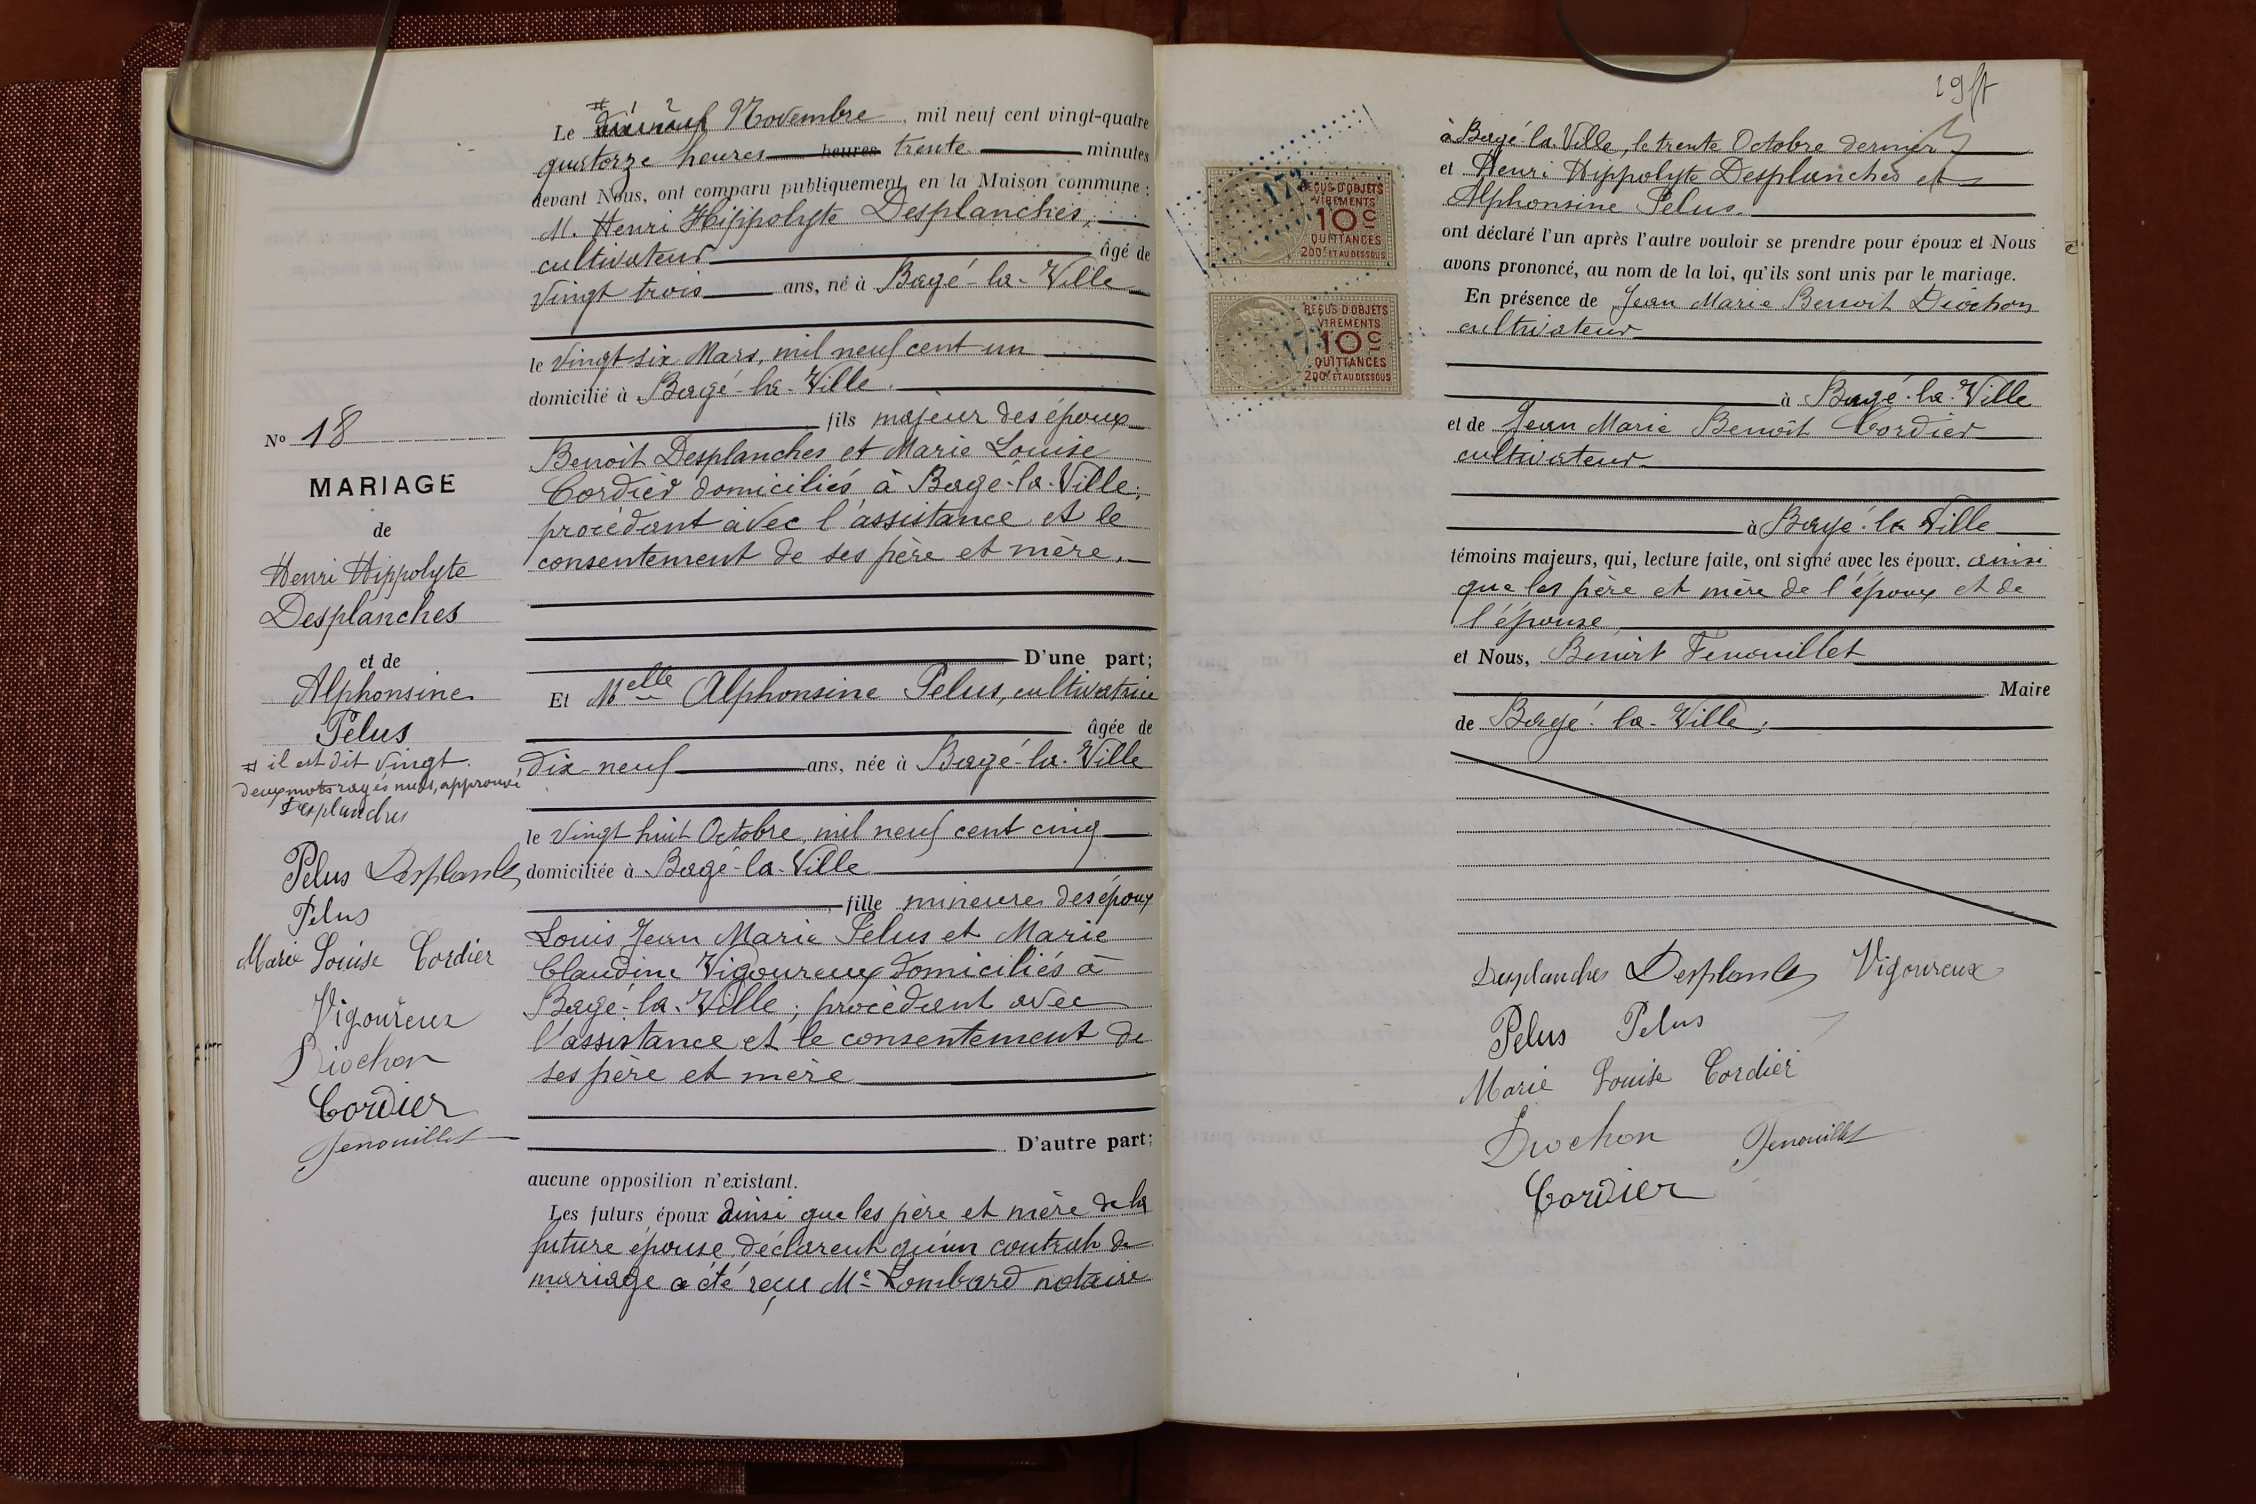 Le dix neuf Novembre, mil neuf cent vingt-quatre
quatorze heures heures trente minutes
devant Nous, ont comparu publiquement en la Maison commune :
M. Henri Hippolyte Desplanches,
cultivateur âgé de
vingt trois ans, né à Bagé-la-Ville
le vingt six Mars, mil neuf cent un
domicilié à Bagé-la-Ville.
fils majeur des époux
Benoit Desplanches et Marie Louise
Cordier domiciliés à Bagé-la-Ville;
procèdant avec l'assistance et le
consentement de ses père et mère.
D'une part;
Et Melle Alphonsine Pelus, cultivatrice
âgée de
dix-neuf ans, née à Bagé-la-Ville
le vingt huit Octobre, mil neuf cent cinq
domiciliée à Bagé-la-Ville
fille mineure des époux
Louis Jean Marie Pelus et Marie
Claudine Vigoureux domiciliés à
Bagé-la-Ville, procèdant avec
l'assistance et le consentement de
ses père et mère
D'autre part;
aucune opposition n'existant.
Les futurs époux ainsi que les père et mère de la
future épouse déclarent qu'un contrat de
mariage a été reçu Me Lombard notaire
No 18
MARIAGE
de
Henri Hippolyte
Desplanches
et de
Alphonsine
Pelus
# il est dit vingt.
deux mots rayés nuls, approuvé
Desplanches
Pelus Desplanches
Pelus
Marie Louise Cordier
Vigoureux
Diochon
Cordier
Fenouillet
19
à Bagé-la-Ville, le trente Octobre dernier
et Henri Hippolyte Desplanches et
Alphonsine Pelus.
ont déclaré l'un après l'autre vouloir se prendre pour époux et Nous
avons prononcé, au nom de la loi, qu'ils sont unis par le mariage.
En présence de Jean Marie Benoit Diochon
cultivateur
à Bagé-la-Ville
et de Jean Marie Benoît Cordier
cultivateur
à Bagé-la-Ville
témoins majeurs, qui, lecture faite, ont signé avec les époux, ainsi
que les père et mère de l'époux et de
l'épouse
et Nous, Benoit Fenouillet
Maire
de Bagé-la-Ville;
Desplanches Desplanches Vigoureux
Pelus Pelus
Marie Louise Cordier
Diochon Fenouillet
Cordier
REÇUS D'OBJETS
VIREMENTS
10c
QUITTANCES
200F ET AU DESSOUS
REÇUS D'OBJETS
VIREMENTS
10c
QUITTANCES
200F ET AU DESSOUS